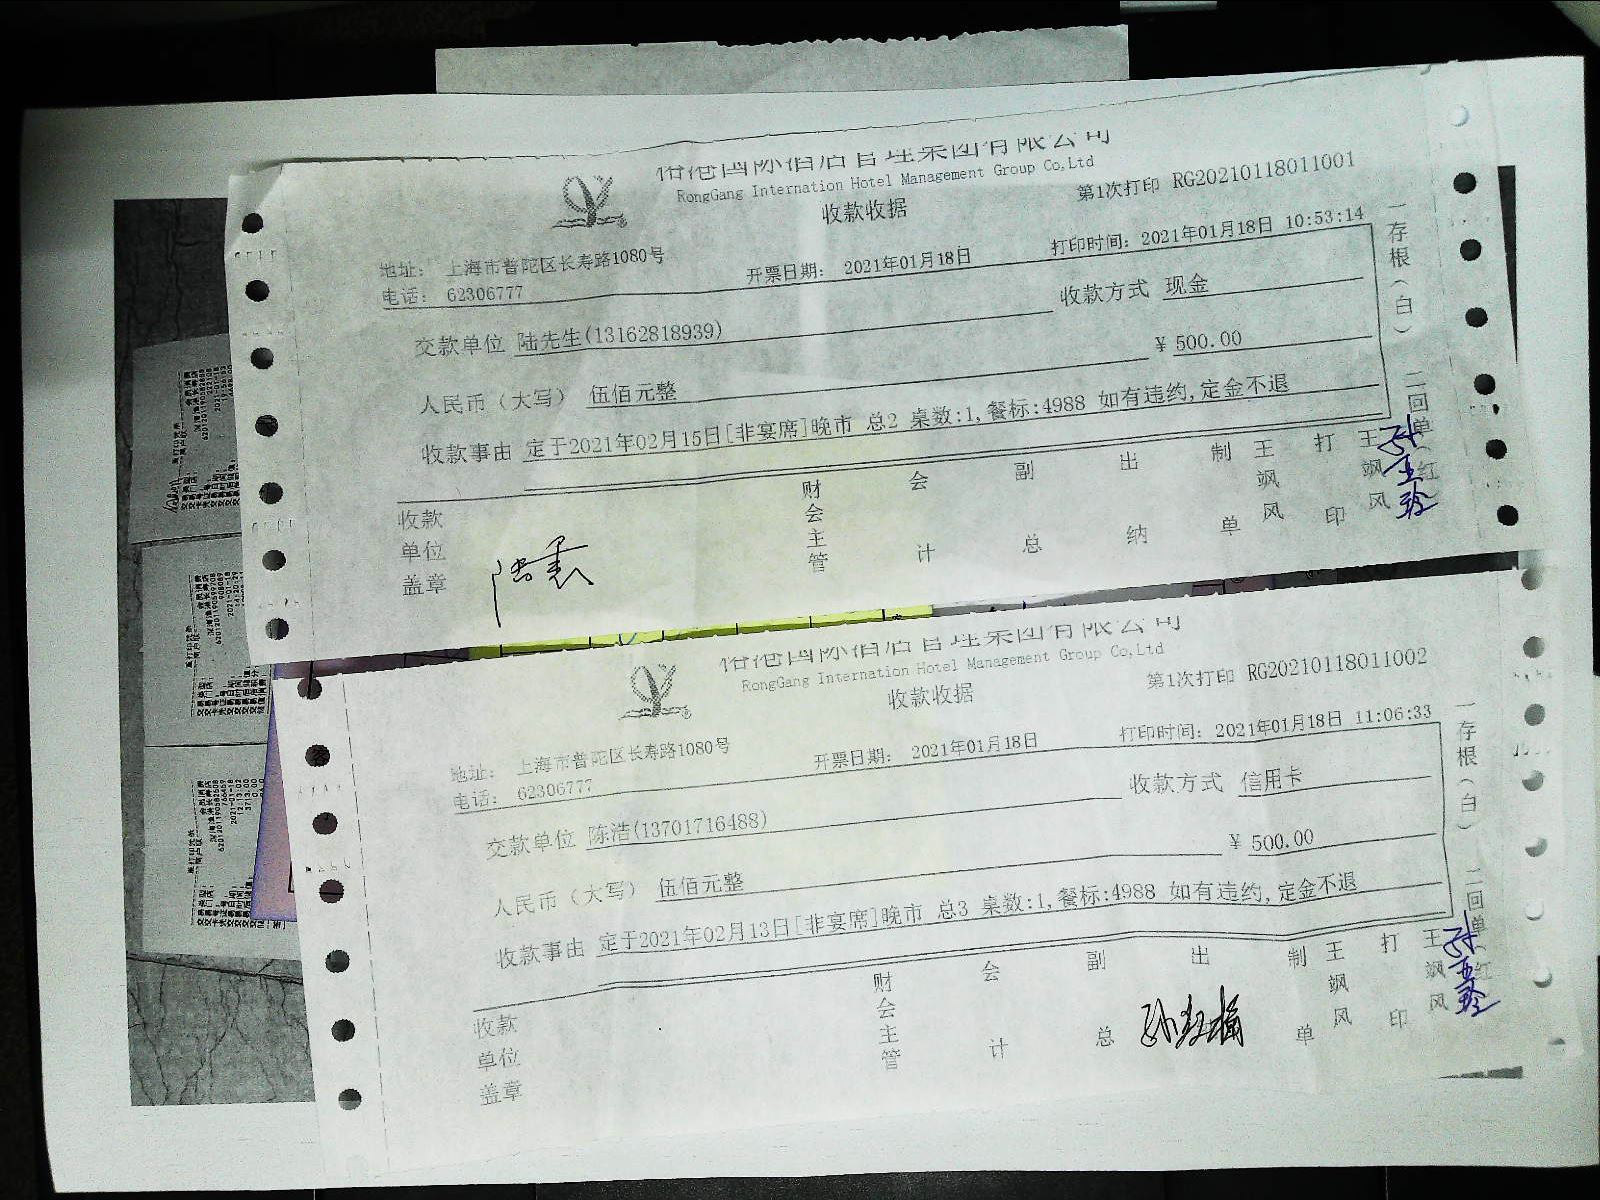 国际酒店管理集团有限公司
RongGang Internation Hotel Management Group Co,Ltd
收款收据
第1次打印 RG20210118011001
地址: 上海市普陀区长寿路1080号
电话: 62306777
开票日期: 2021年01月18日
打印时间: 2021年01月18日 10:53:14
交款单位 陆先生(13162818939)
收款方式 现金
人民币（大写） 伍佰元整
¥ 500.00
收款事由 定于2021年02月15日[非宴席]晚市 总2 桌数:1,餐标:4988 如有违约,定金不退
收款单位盖章
财会主管
会计
副总
出纳
制单
王飒风
打印
王飒风
一存根(白)
二回单(红
国际酒店管理集团有限公司
RongGang Internation Hotel Management Group Co,Ltd
收款收据
第1次打印 RG20210118011002
地址: 上海市普陀区长寿路1080号
电话: 62306777
开票日期: 2021年01月18日
打印时间: 2021年01月18日 11:06:33
交款单位 陈浩(13701716488)
收款方式 信用卡
人民币（大写） 伍佰元整
¥ 500.00
收款事由 定于2021年02月13日[非宴席]晚市 总3 桌数:1,餐标:4988 如有违约,定金不退
收款单位盖章
财会主管
会计
副总
出
制单
王飒风
打印
王飒风
一存根(白)
二回单(红